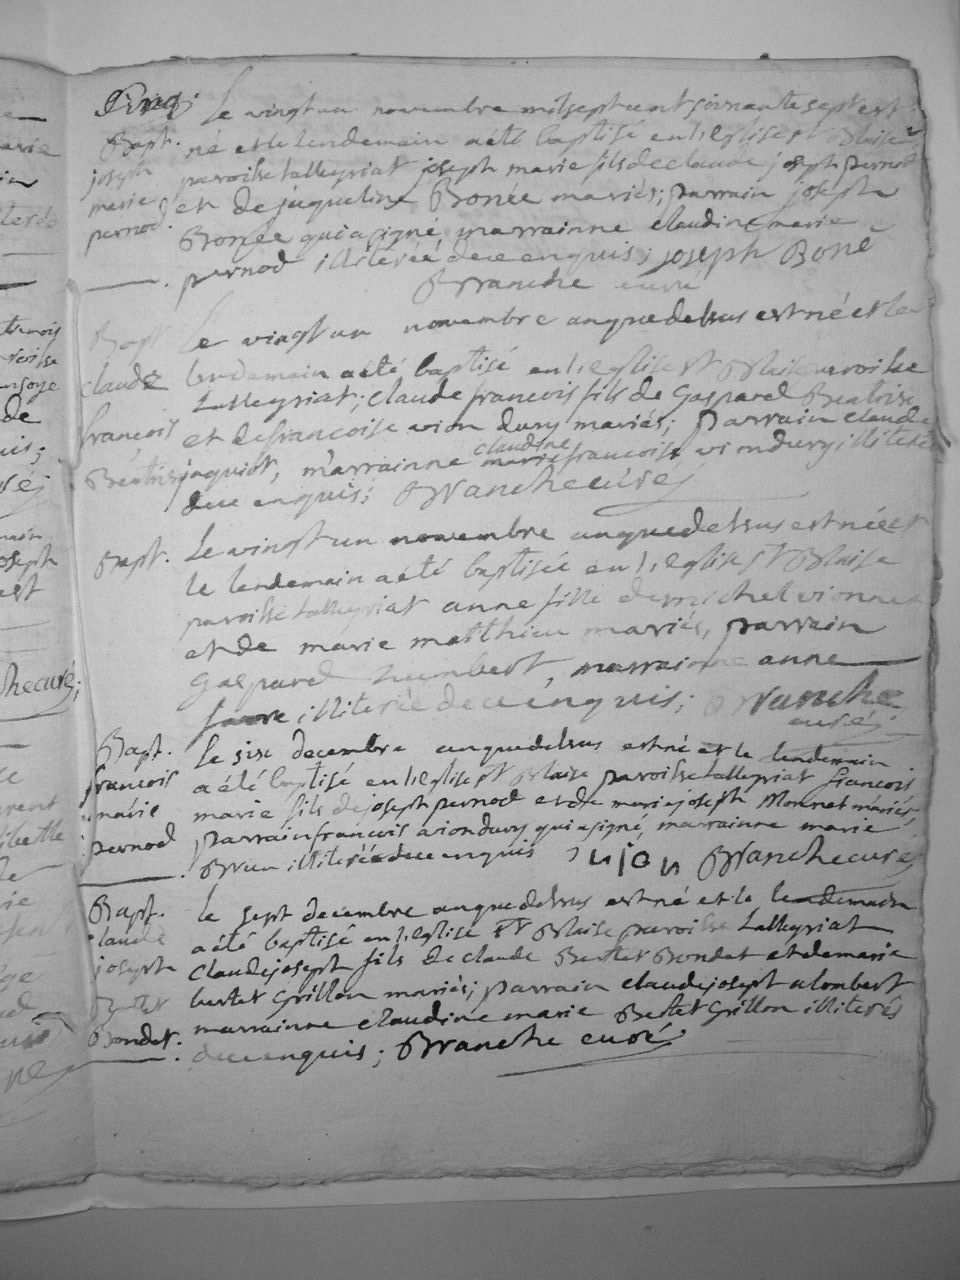 Cinq;
Bapt.
joseph
marie
pernod.
Le vingt un novembre mil sept cent soixante sept est
né et le lendemain a été baptisé en l'eglise st Blaise
paroisse Lalleyriat joseph marie fils de claude joseph pernod
et de jaqueline Bonée mariés; parrain joseph
Bonée qui a signé marrainne claudine marie
pernod illiterée de ce enquis; joseph Boné
Branche curé
Bapt
claude
françois
Le vingt un novembre an que dessus est né et le
lendemain a été baptisé en l'eglise st Blaise paroisse
Lalleyriat; claude francois fils de Gaspard
et de francoise vion dury mariés; parrain claude
jaquiot, marrainne claudine francoise vion dury illiterés
de ce enquis; Branche curé
Bapt.
Le vingt un novembre an que dessus est née et
le lendemain a été baptisée en l'eglise st Blaise
paroisse Lalleyriat anne fille de michel vionnet
et de marie matthieu mariés, parrain
Gaspard humbert, marrainne anne
illiterée de ce enquis; Branche
curé
Bapt.
françois
marie
pernod
Le six decembre an que dessus est né et le lendemain
a été baptisé en l'eglise st Blaise paroisse Lalleyriat françois
marie fils de joseph pernod et de marie joseph Monnet mariés,
parrain francois viondury qui a signé, marrainne marie
Brun illiterée de ce enquis Branche curé
Bapt.
claude
joseph
Bertet
Bondet.
Le sept decembre an que dessus est né et le lendemain
a été baptisé en l'eglise st Blaise paroisse Lalleyriat
claude joseph fils de claude Bertet Bondet et de marie
bertet Grillon mariés; parrain claude joseph alombert
marrainne claudine marie Bertet Grillon illiterés
de ce enquis; Branche curé